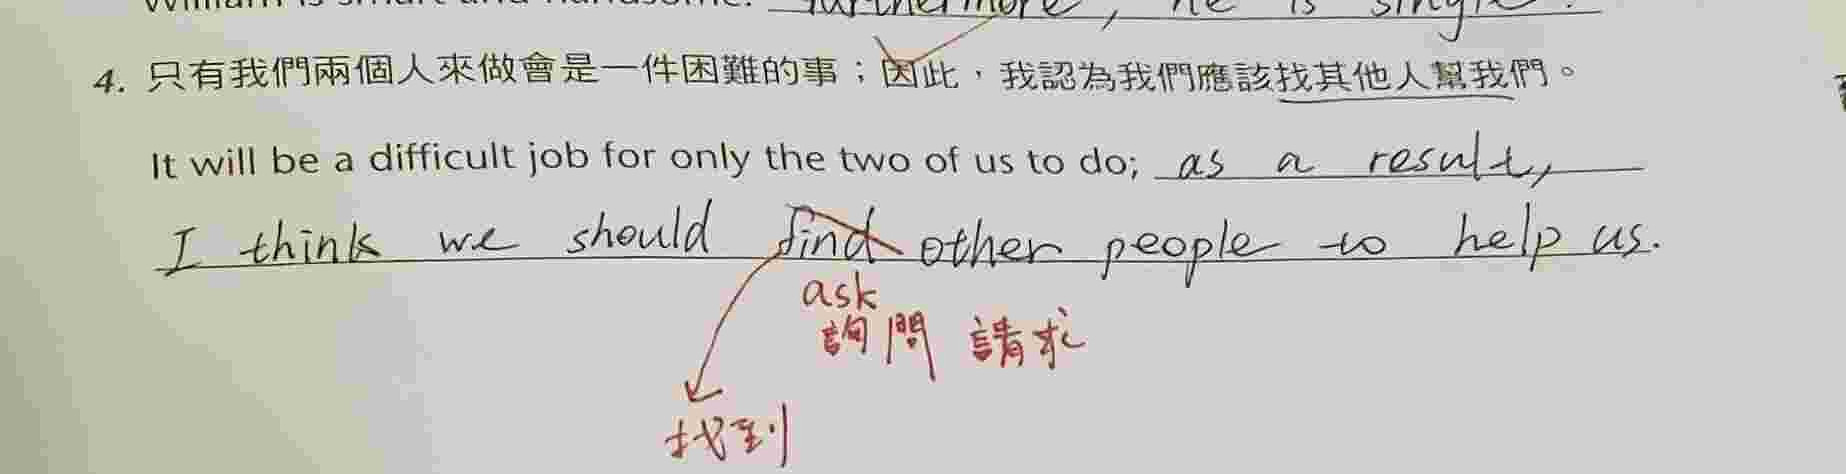 William is smart and handsome. furthermore, he is single.
4. 只有我們兩個人來做會是一件困難的事；因此，我認為我們應該找其他人幫我們。
It will be a difficult job for only the two of us to do; as a result,
I think we should find other people to help us.
ask
詢問 請求
找到